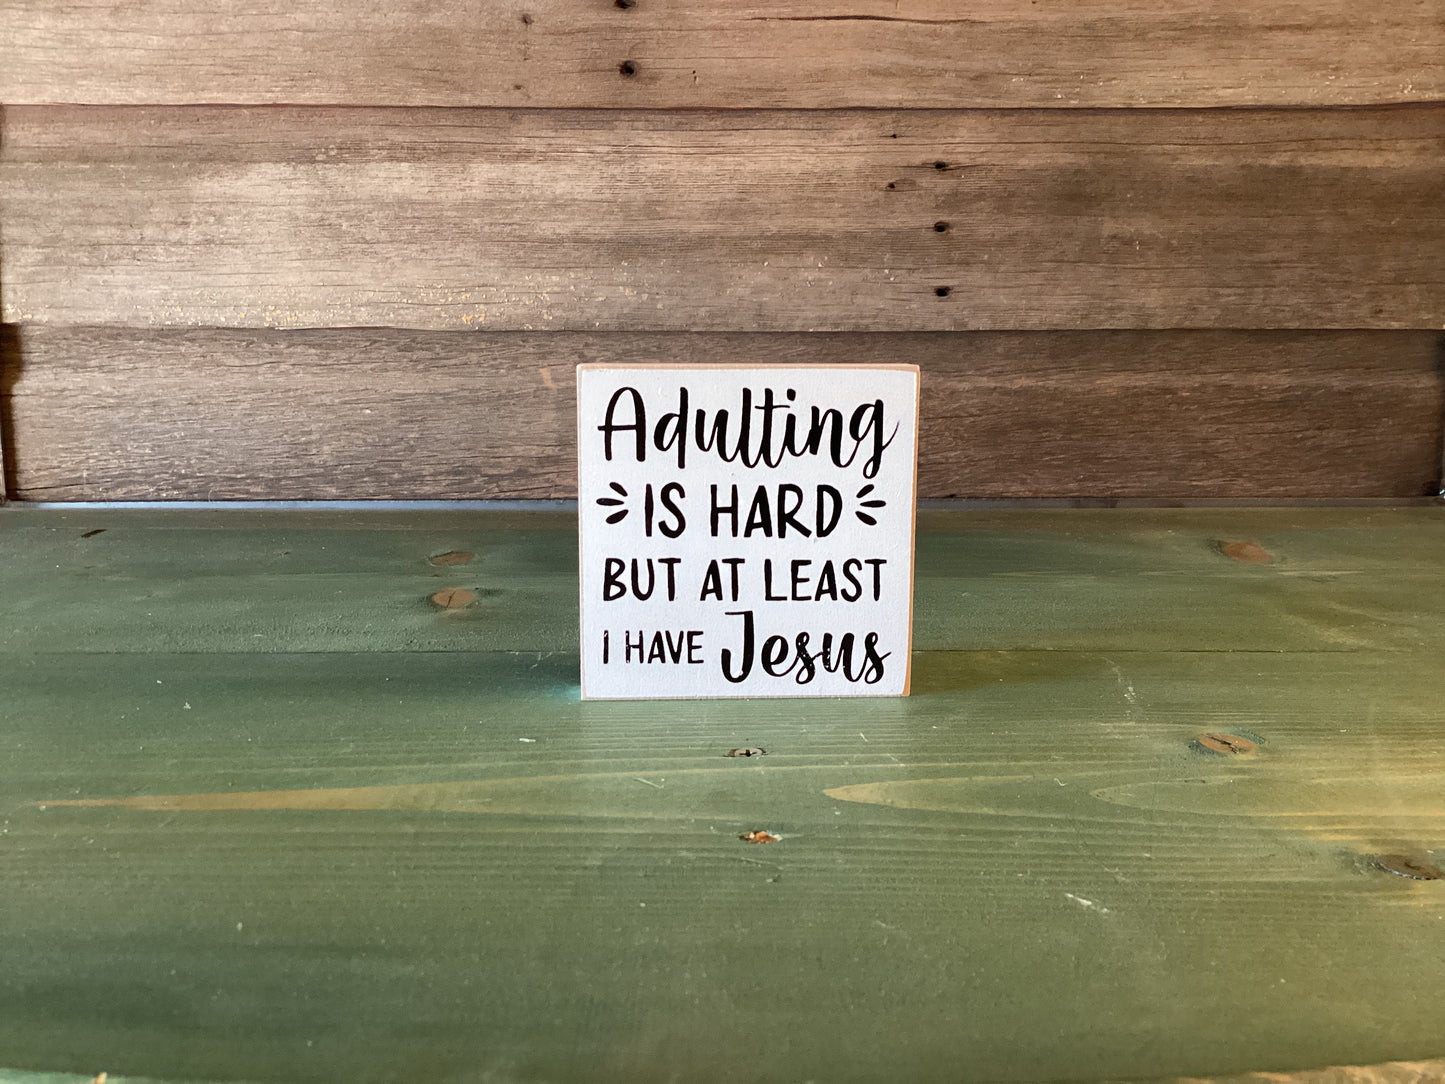 Adulting
IS HARD
BUT AT LEAST
I HAVE Jesus